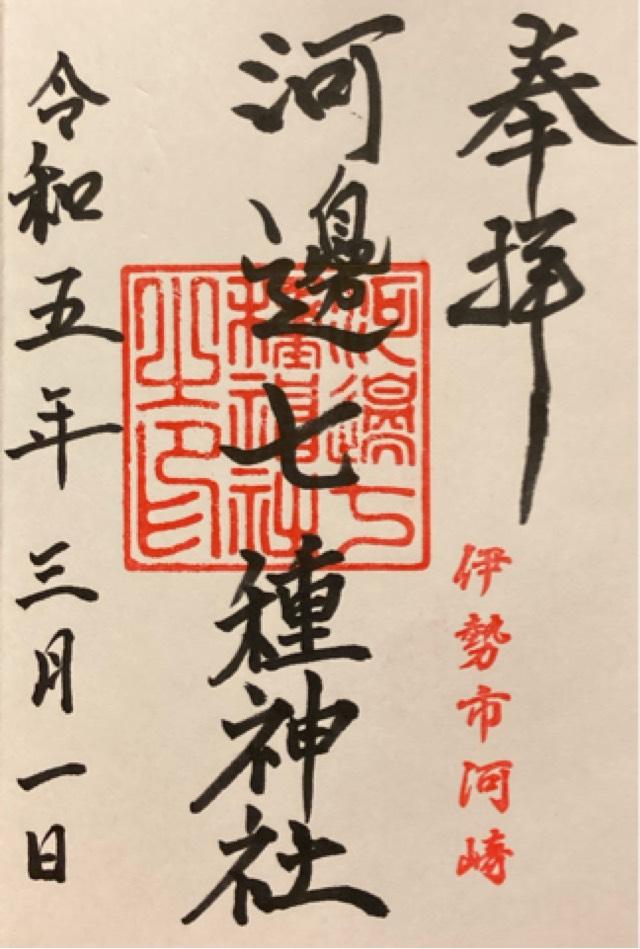 奉拝
伊勢市河崎
河邊七種神社
河邊七種神社之印
令和五年三月一日